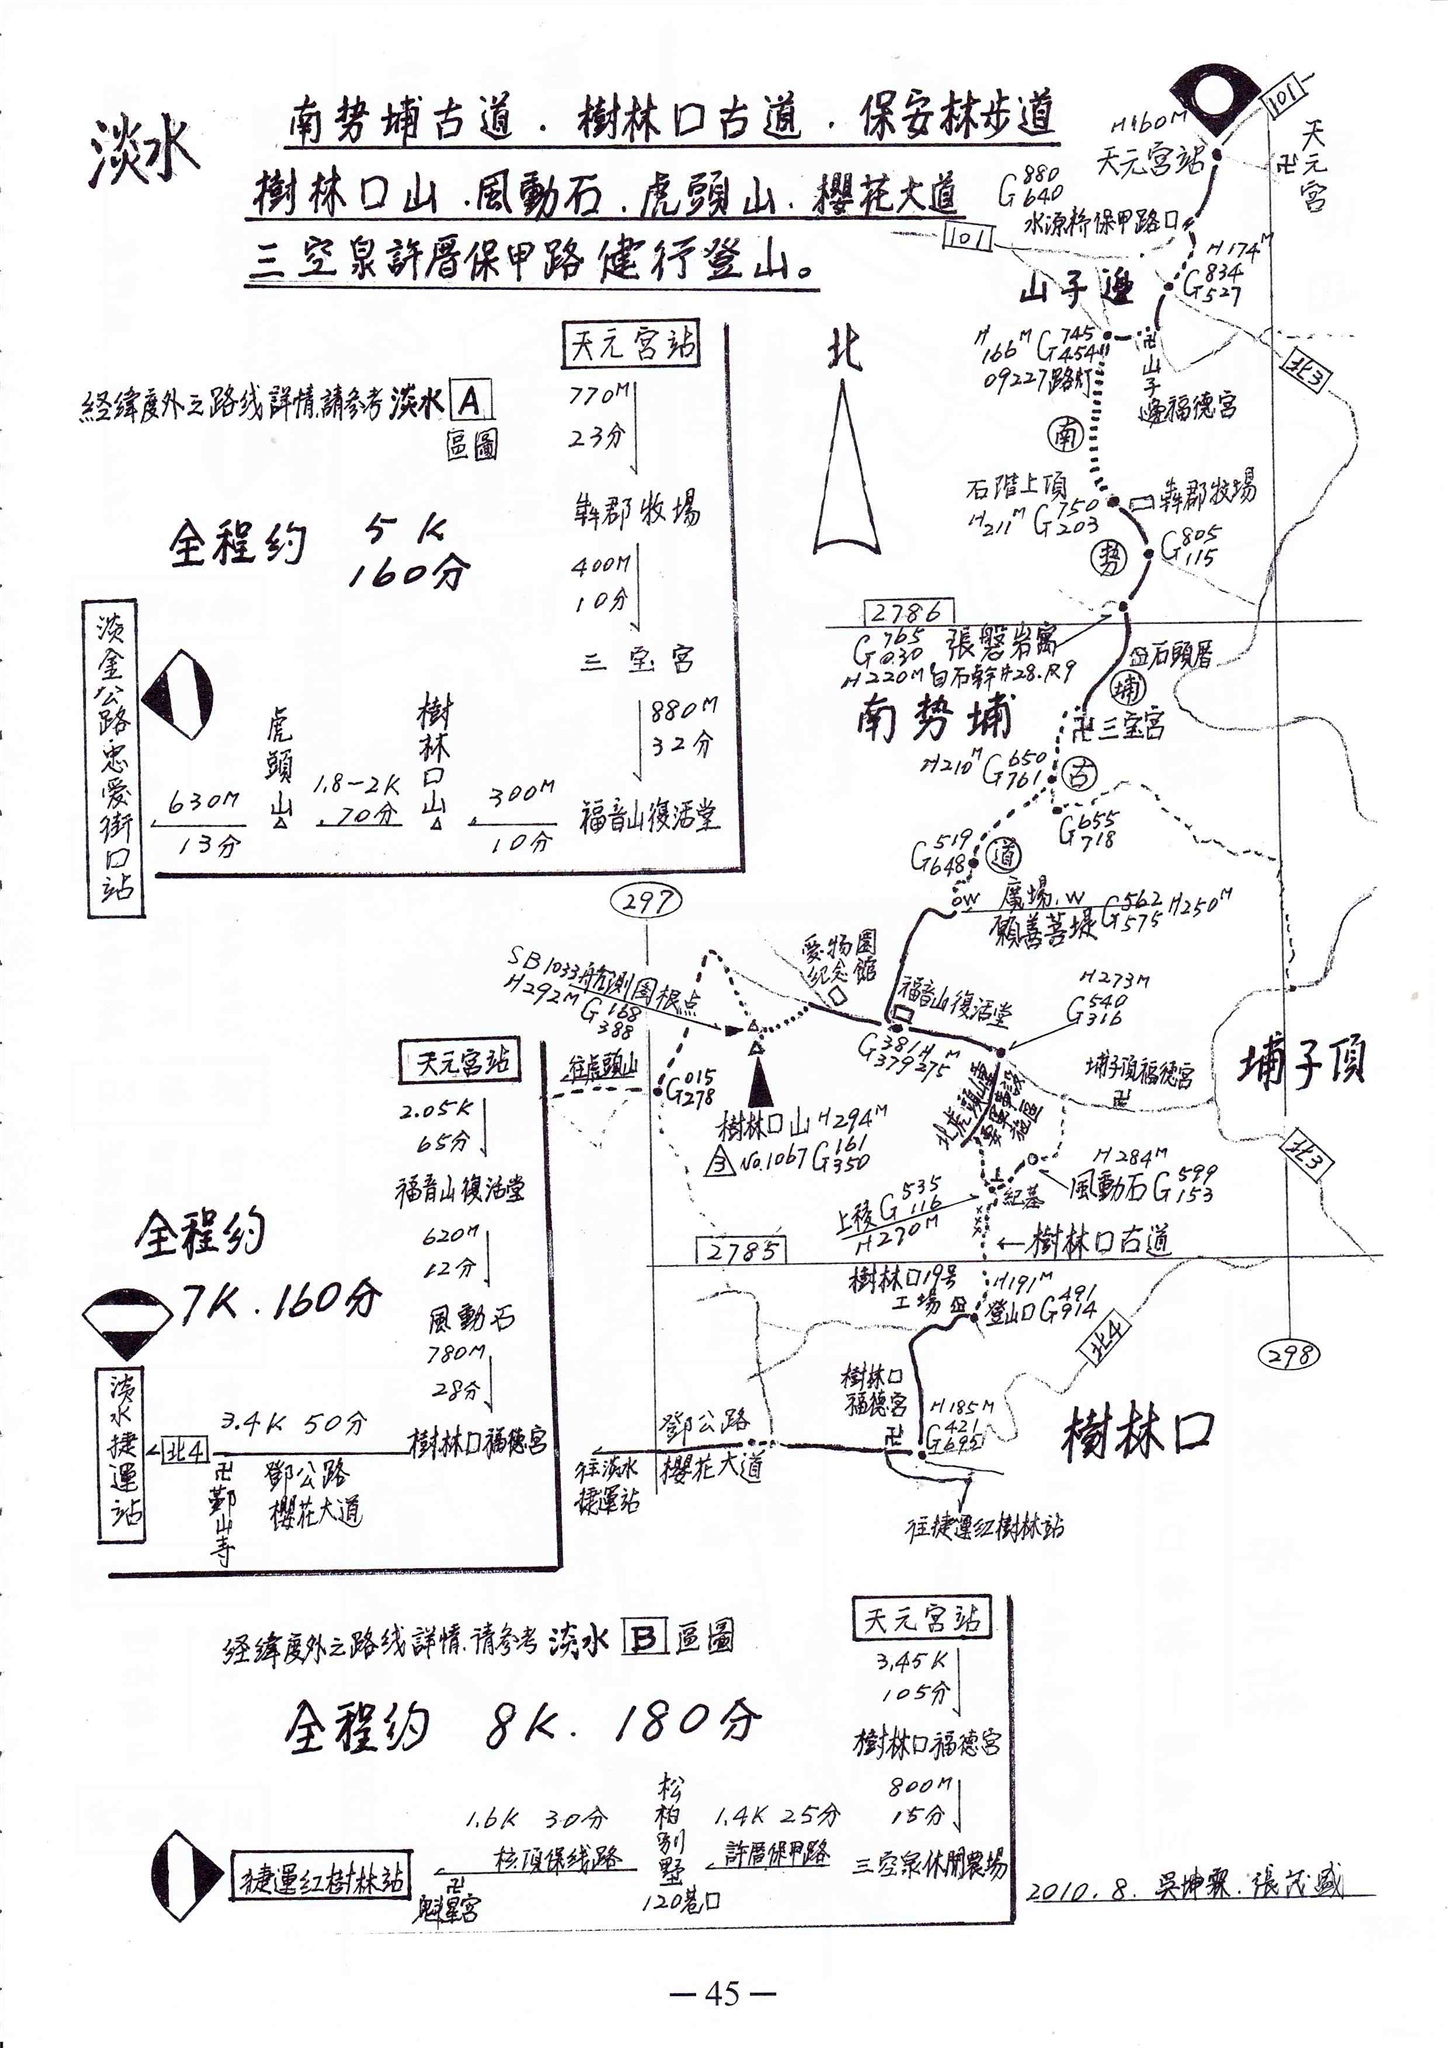 淡水
南势埔古道．樹林口古道．保安林步道
樹林口山．風動石．虎頭山．櫻花大道
三空泉許厝保甲路健行登山。
經緯度外之路线詳情請參考淡水 A
區圖
全程約 5K
160分
天元宮站
770M
23分
犇郡牧場
400M
10分
三宝宮
880M
32分
福音山復活堂
300M
10分
樹林口山
1.8-2K
70分
虎頭山
630M
13分
淡金公路忠爱街口站
北
101
天元宮
H160M
天元宮站
G 880 640
水源桥保甲路口
101
H174M
G 834 527
山子邊
H 166M G 745 454
09227路灯
山子邊福德宮
北3
南
石階上頂
H211M G 750 203
犇郡牧場
势
G 805 115
2786
G 765 030 張磐岩寓
H220M 白石幹#28.R9
石頭厝
埔
南势埔
三宝宮
H210M G 650 761
古
G 655 718
G 519 648
道
廣場.W
願善菩堤
G 562 575 H250M
297
SB1033航測圖根点
H292M G 168 388
爱物園
紀念館
福音山復活堂
H273M
G 540 316
G 381 379 H 275M
埔子頂福德宮
埔子頂
往虎頭山
G 015 278
樹林口山 H294M
3 No.1067 G 161 350
H284M
風動石 G 599 153
紀基
上稜 G 535 116
H270M
←樹林口古道
北3
2785
樹林口19号
工場
H191M
登山口 G 491 914
北4
298
樹林口
福德宮
H185M
G 421 695
樹林口
鄧公路
櫻花大道
往淡水
捷運站
往捷運红樹林站
天元宮站
2.05K
65分
福音山復活堂
620M
12分
風動石
780M
28分
樹林口福德宮
全程約
7K．160分
3.4K 50分
北4
鄞山寺
鄧公路
櫻花大道
淡水捷運站
經緯度外之路线詳情．请参考淡水 B 區圖
全程約 8K．180分
天元宮站
3.45K
105分
樹林口福德宮
800M
15分
三空泉休閒農場
1.4K 25分
許厝保甲路
松柏别墅
120巷口
1.6K 30分
核頂保线路
魁星宮
捷運红樹林站
2010.8.吳坤霖．張茂盛
－45－